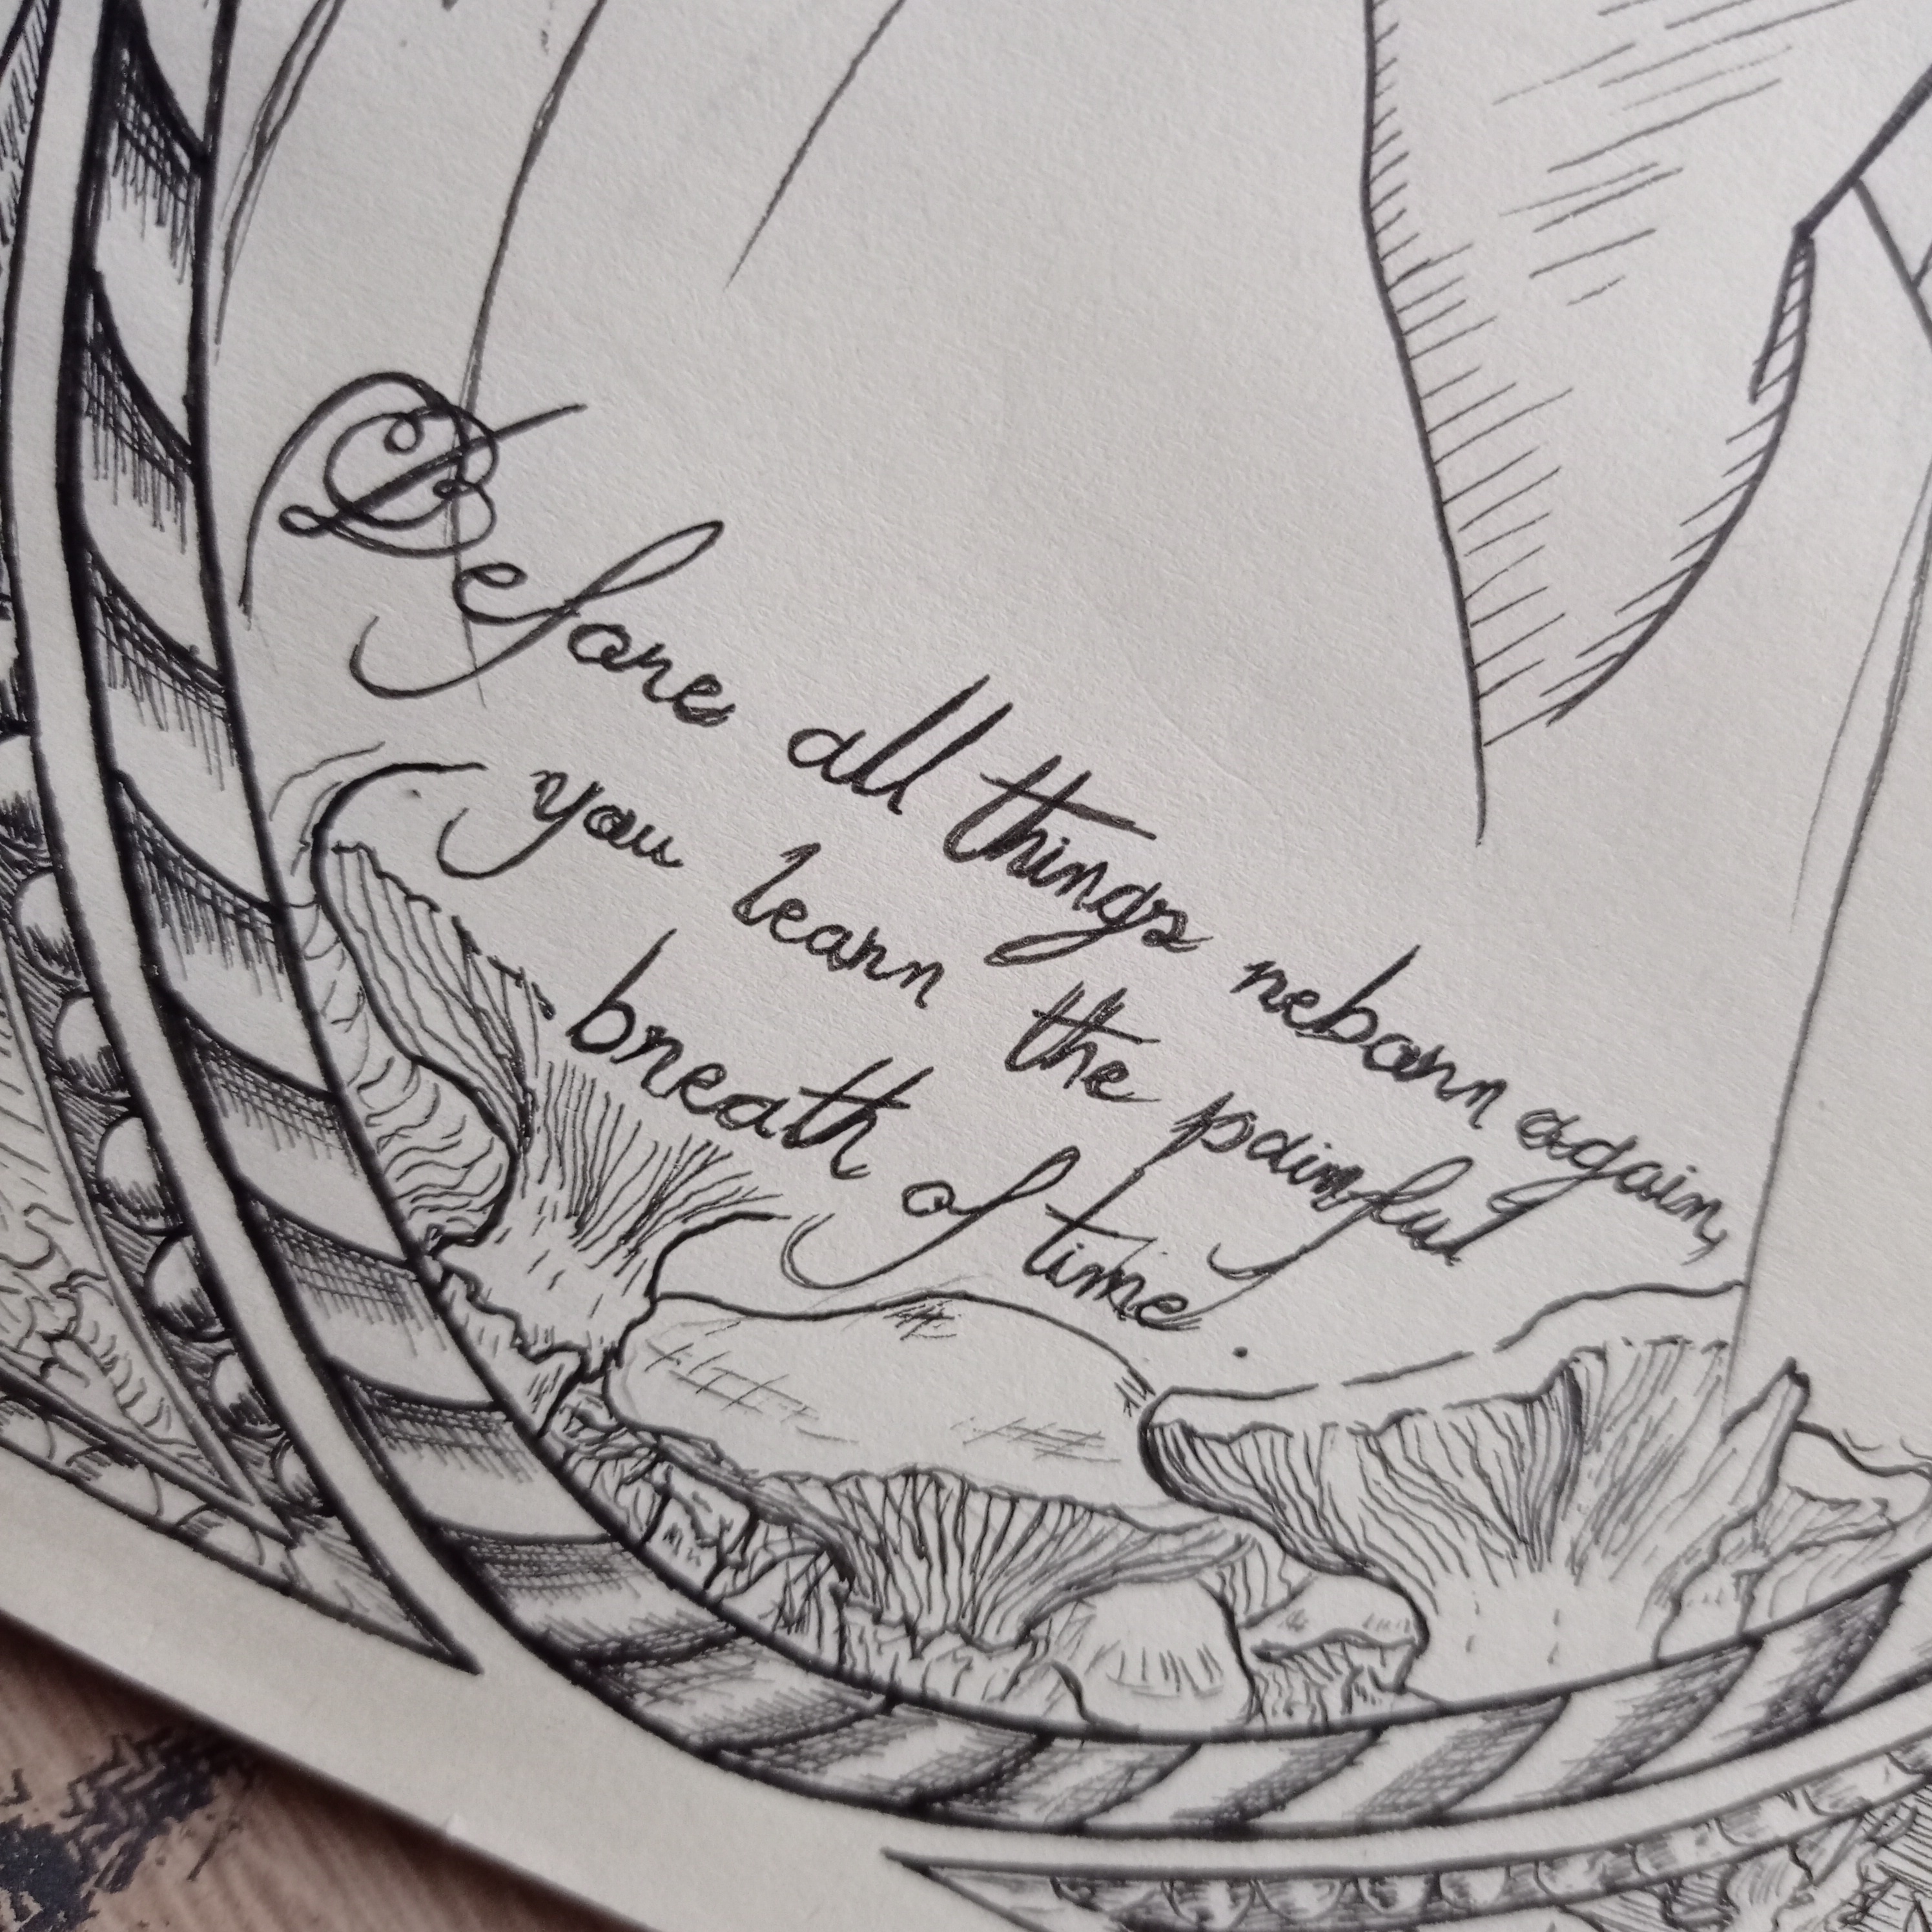 Before all things reborn again,
you learn the painful
breath of time.